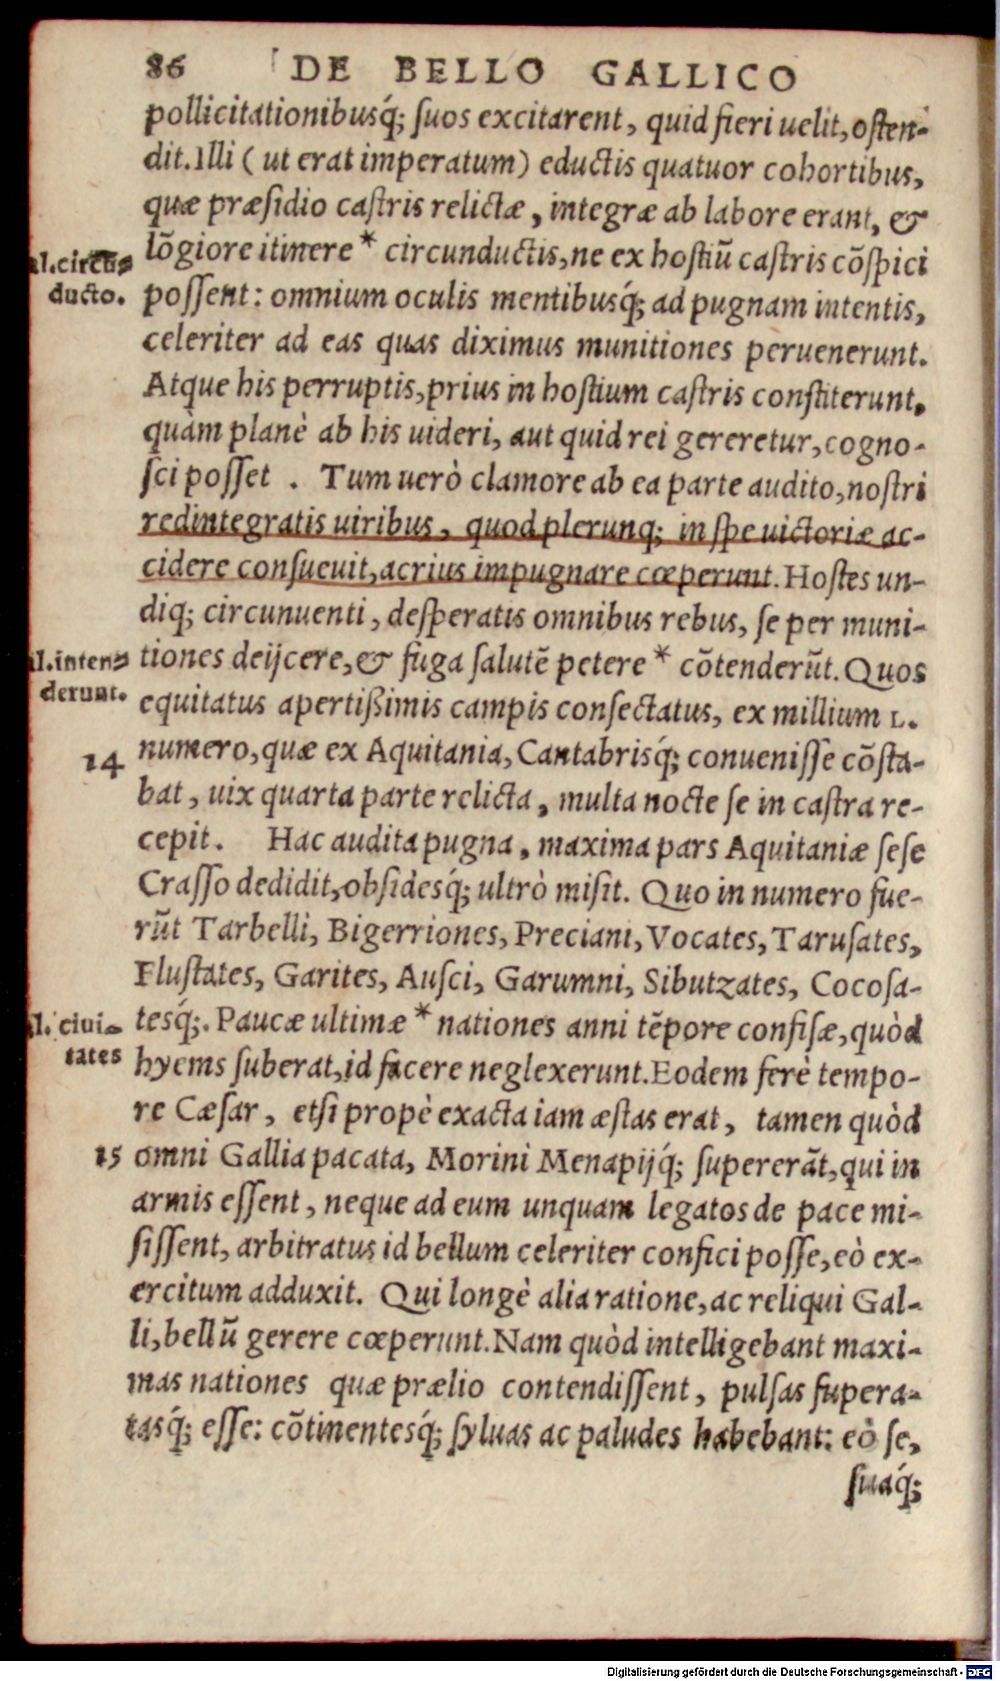 86 DE BELLO GALLICO
pollicitationibusq́; ſuos excitarent, quid fieri uelit, oſten-
dit. Illi (ut erat imperatum) eductis quatuor cohortibus,
quæ præſidio caſtris relictæ, integræ ab labore erant, &
lõgiore itinere * circunductis, ne ex hoſtiũ caſtris cõſpici
al. circũ-
ducto.
poſſent: omnium oculis mentibusq́; ad pugnam intentis,
celeriter ad eas quas diximus munitiones peruenerunt.
Atque his perruptis, prius in hoſtium caſtris conſtiterunt,
quàm planè ab his uideri, aut quid rei gereretur, cogno-
ſci poſſet. Tum uerò clamore ab ea parte audito, noſtri
redintegratis uiribus, quod plerunq; in ſpe uictoriæ ac-
cidere conſueuit, acrius impugnare cœperunt. Hoſtes un-
diq; circunuenti, deſperatis omnibus rebus, ſe per muni-
tiones deijcere, & fuga ſalutẽ petere * cõtenderũt. Quos
al. inten-
derunt.
equitatus apertißimis campis conſectatus, ex millium L.
14 numero, quæ ex Aquitania, Cantabrisq́; conueniſſe cõſta-
bat, uix quarta parte relicta, multa nocte ſe in caſtra re-
cepit. Hac audita pugna, maxima pars Aquitaniæ ſeſe
Craſſo dedidit, obſidesq́; ultrò miſit. Quo in numero fue-
rũt Tarbelli, Bigerriones, Preciani, Vocates, Taruſates,
Fluſtates, Garites, Auſci, Garumni, Sibutzates, Cocoſa-
tesq́;. Paucæ ultimæ * nationes anni tẽpore confiſæ, quòd
al. ciui-
tates
hyems ſuberat, id facere neglexerunt. Eodem ferè tempo-
re Cæſar, etſi propè exacta iam æſtas erat, tamen quòd
15 omni Gallia pacata, Morini Menapijq́; ſupererãt, qui in
armis eſſent, neque ad eum unquam legatos de pace mi-
ſiſſent, arbitratus id bellum celeriter confici poſſe, eò ex-
ercitum adduxit. Qui longè alia ratione, ac reliqui Gal-
li, bellũ gerere cœperunt. Nam quòd intelligebant maxi-
mas nationes quæ prælio contendiſſent, pulſas ſupera-
tasq́; eſſe: cõtinentesq́; ſyluas ac paludes habebant: eò ſe,
ſuaq́;
Digitalisierung gefördert durch die Deutsche Forschungsgemeinschaft - DFG